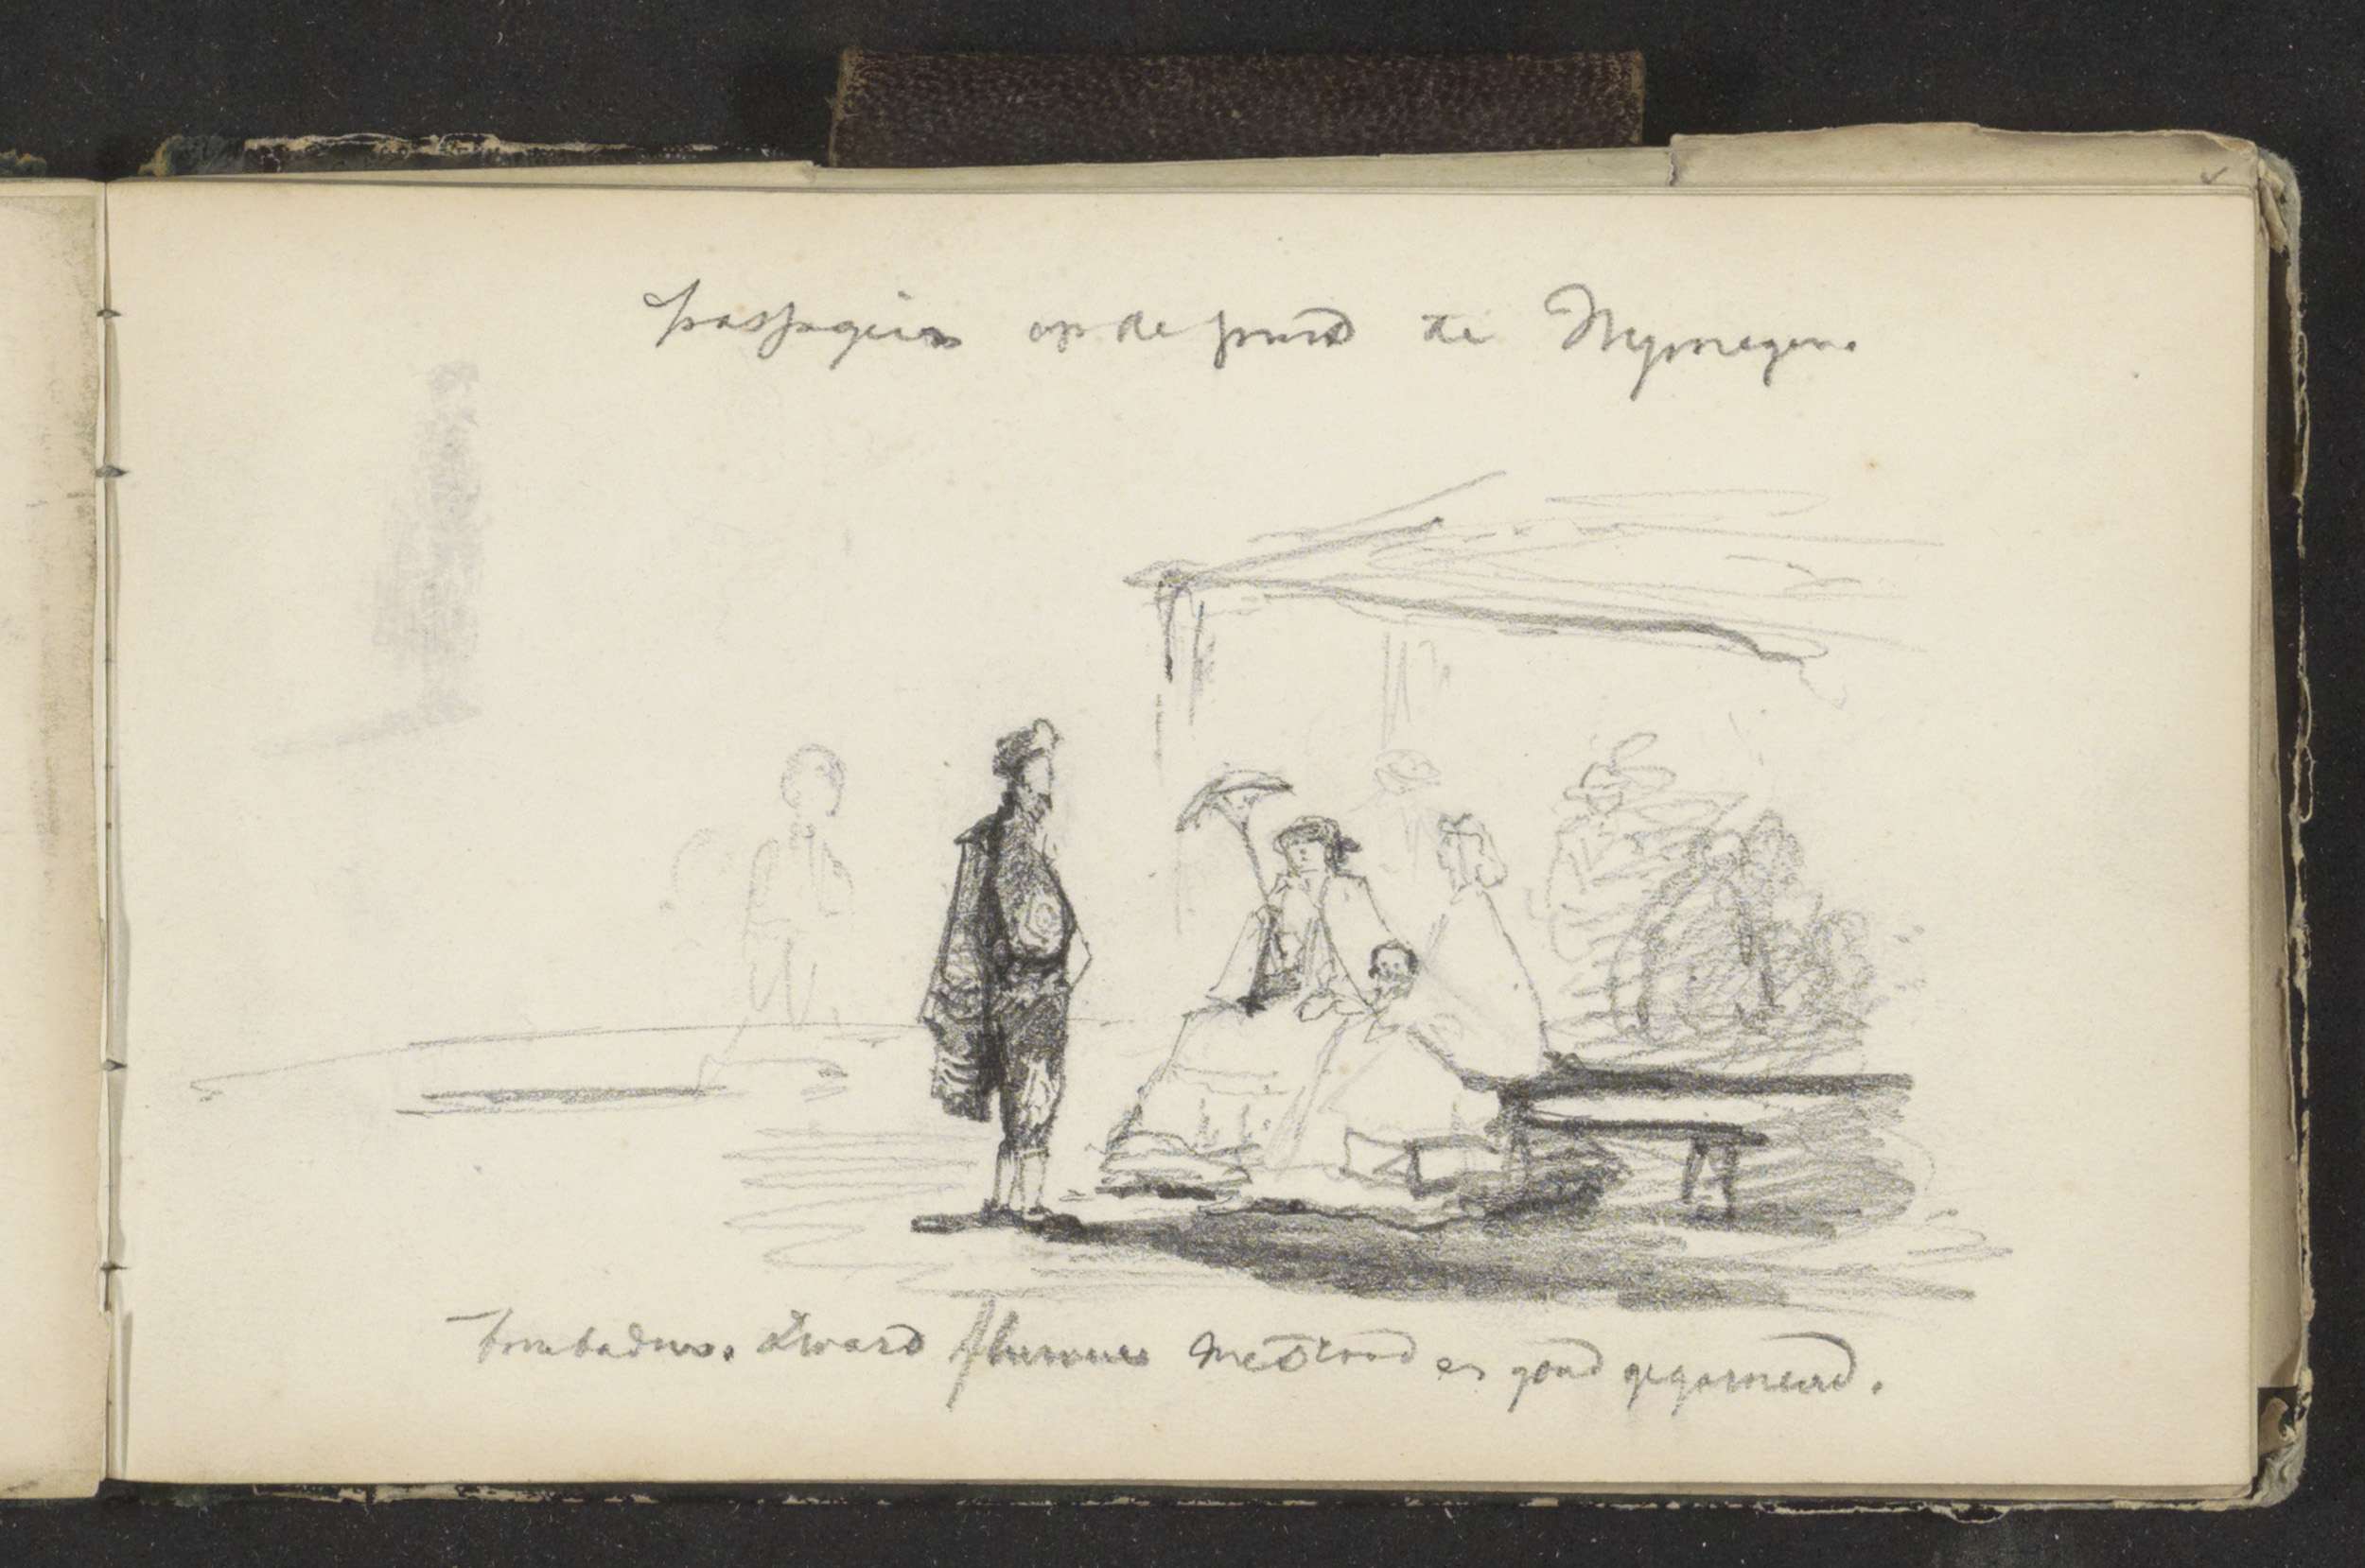 passagiers op de pond te Nymegen.
troubadour. zwart fluweel met rood en goud gegarneerd.